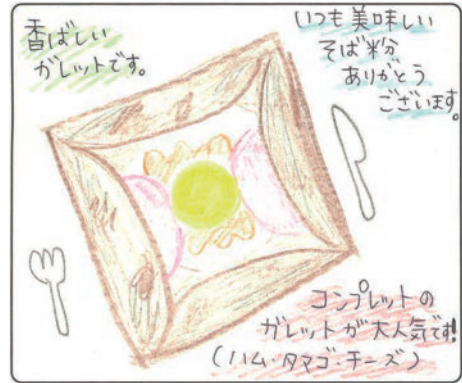 香ばしい
ガレットです。
いつも美味しい
そば粉
ありがとう
ございます。
コンプレットの
ガレットが大人気です!
(ハム・タマゴ・チーズ)